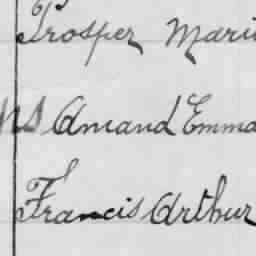 Prosper Mari
NS Amand Emma
Francis Arthur